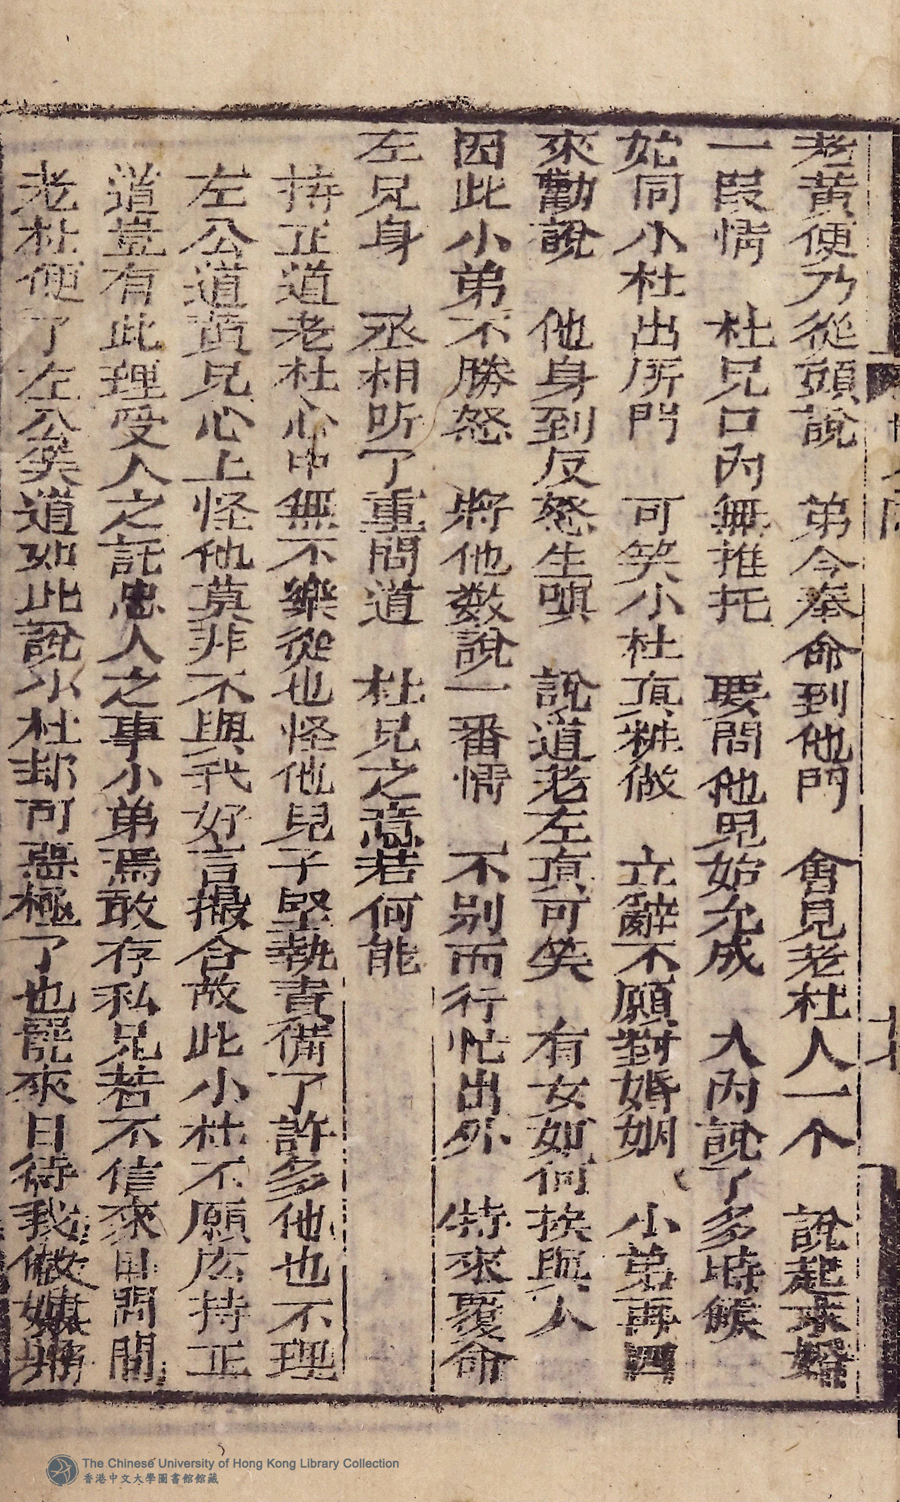 老黃便乃從頭說　弟今奉命到他門　會見老杜人一个　說起求婚
一段情　杜兄口內無推托　要問他児始允成　入內說了多時候
始同小杜出㕔門　可笑小杜真粧做　立辭不願對婚姻　小弟再四
來勸說　他身到反怒生嗔　說道老左真可笑　有女如何挨與人
因此小弟不勝怒　將他数說一番情　不别而行忙出外　特來覆命
左兄身　丞相听了重問道　杜兄之意若何能
持正道老杜心中無不樂從也怪他兒子堅執責備了許多他也不理
左公道黃兄心上怪他莫非不與我好言撮合故此小杜不願広持正
道豈有此理受人之託忠人之事小弟焉敢存私兄若不信來日問問
老杜便了左公笑道如此說小杜却可惡極了也罷來日待我做
十七
The Chinese University of Hong Kong Library Collection
香港中文大學圖書館館藏